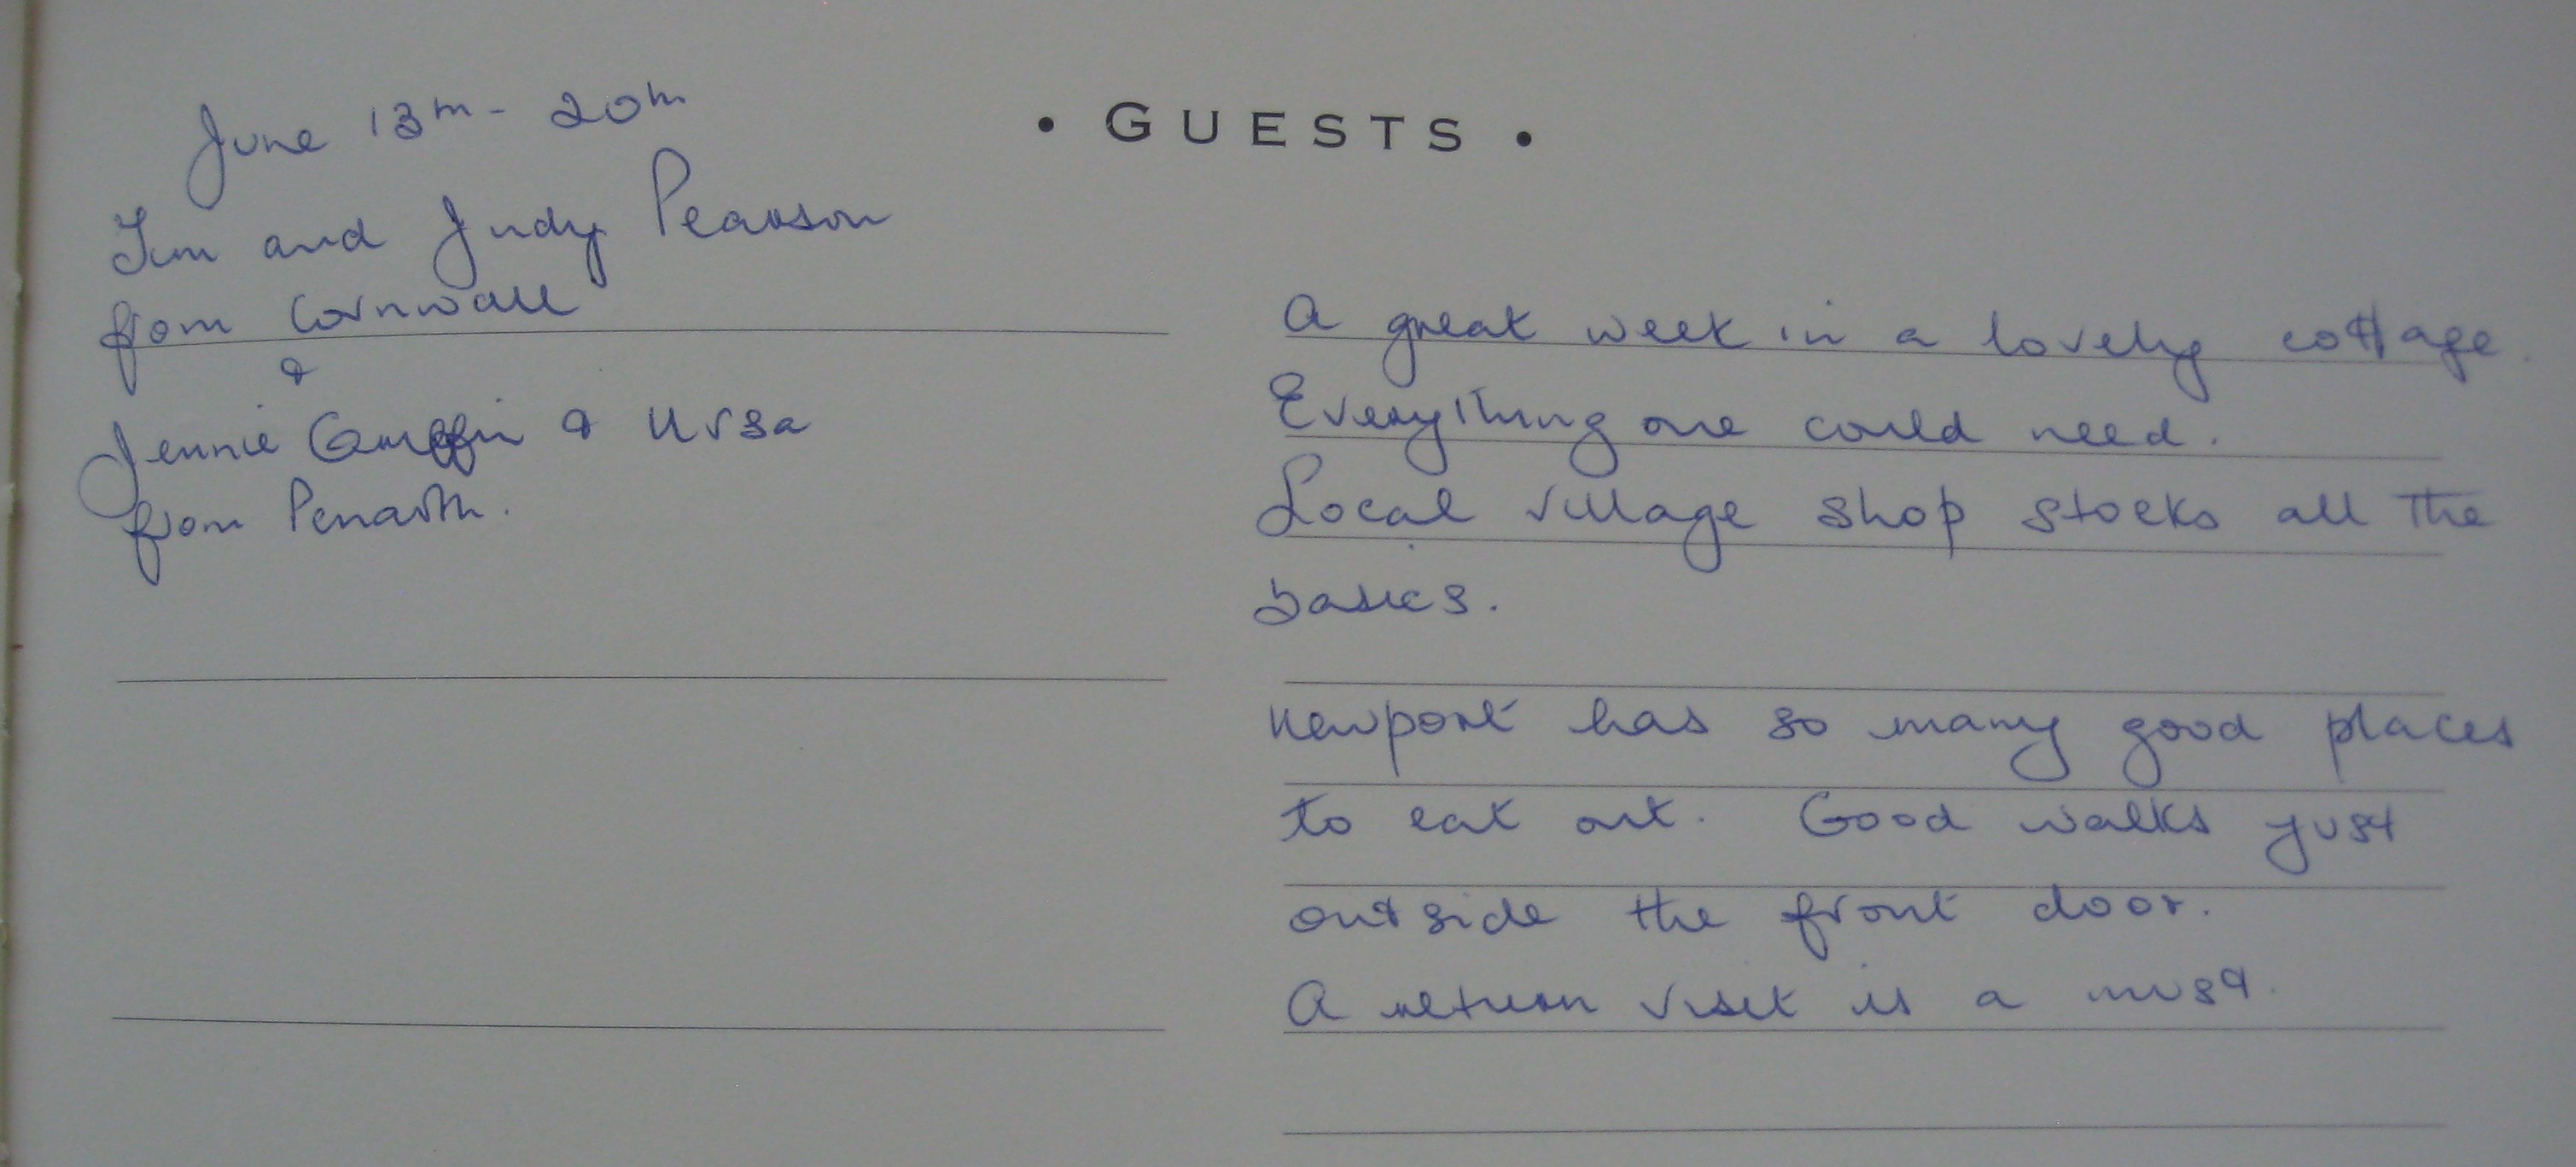 • GUESTS •
June 13th - 20th
Tim and Judy Pearson
from Cornwall
&
Jennie Griffin & Ursa
from Penarth.
A great week in a lovely cottage.
Everything one could need.
Local village shop stocks all the
basics.
Newport has so many good places
to eat out. Good walks just
outside the front door.
A return visit is a must.